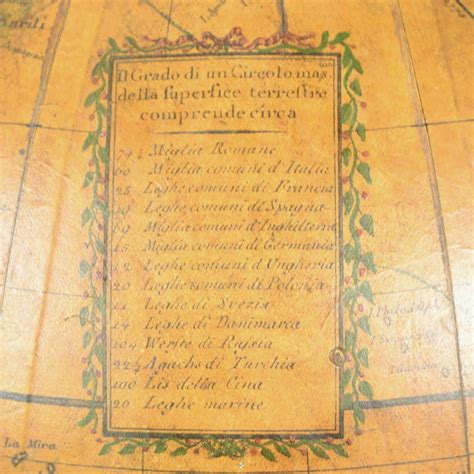 Il Grado di un Circolo mas.
della superfice terrestre
comprende circa
74½ Miglia Romane
60 Miglia comuni d'Italia
25 Leghe comuni di Francia
19 Leghe comuni di Spagna
Miglia comuni d'Inghilterra
15 Miglia comuni di Germania
12 Leghe comuni d'Ungharia
20 Leghe comuni di Polonia
Leghe di Svezia
14 Leghe di Danimarca
104 Werste di Russia
22½ Agachs di Turchia
Lis della Cina
20 Leghe marine
La Mira